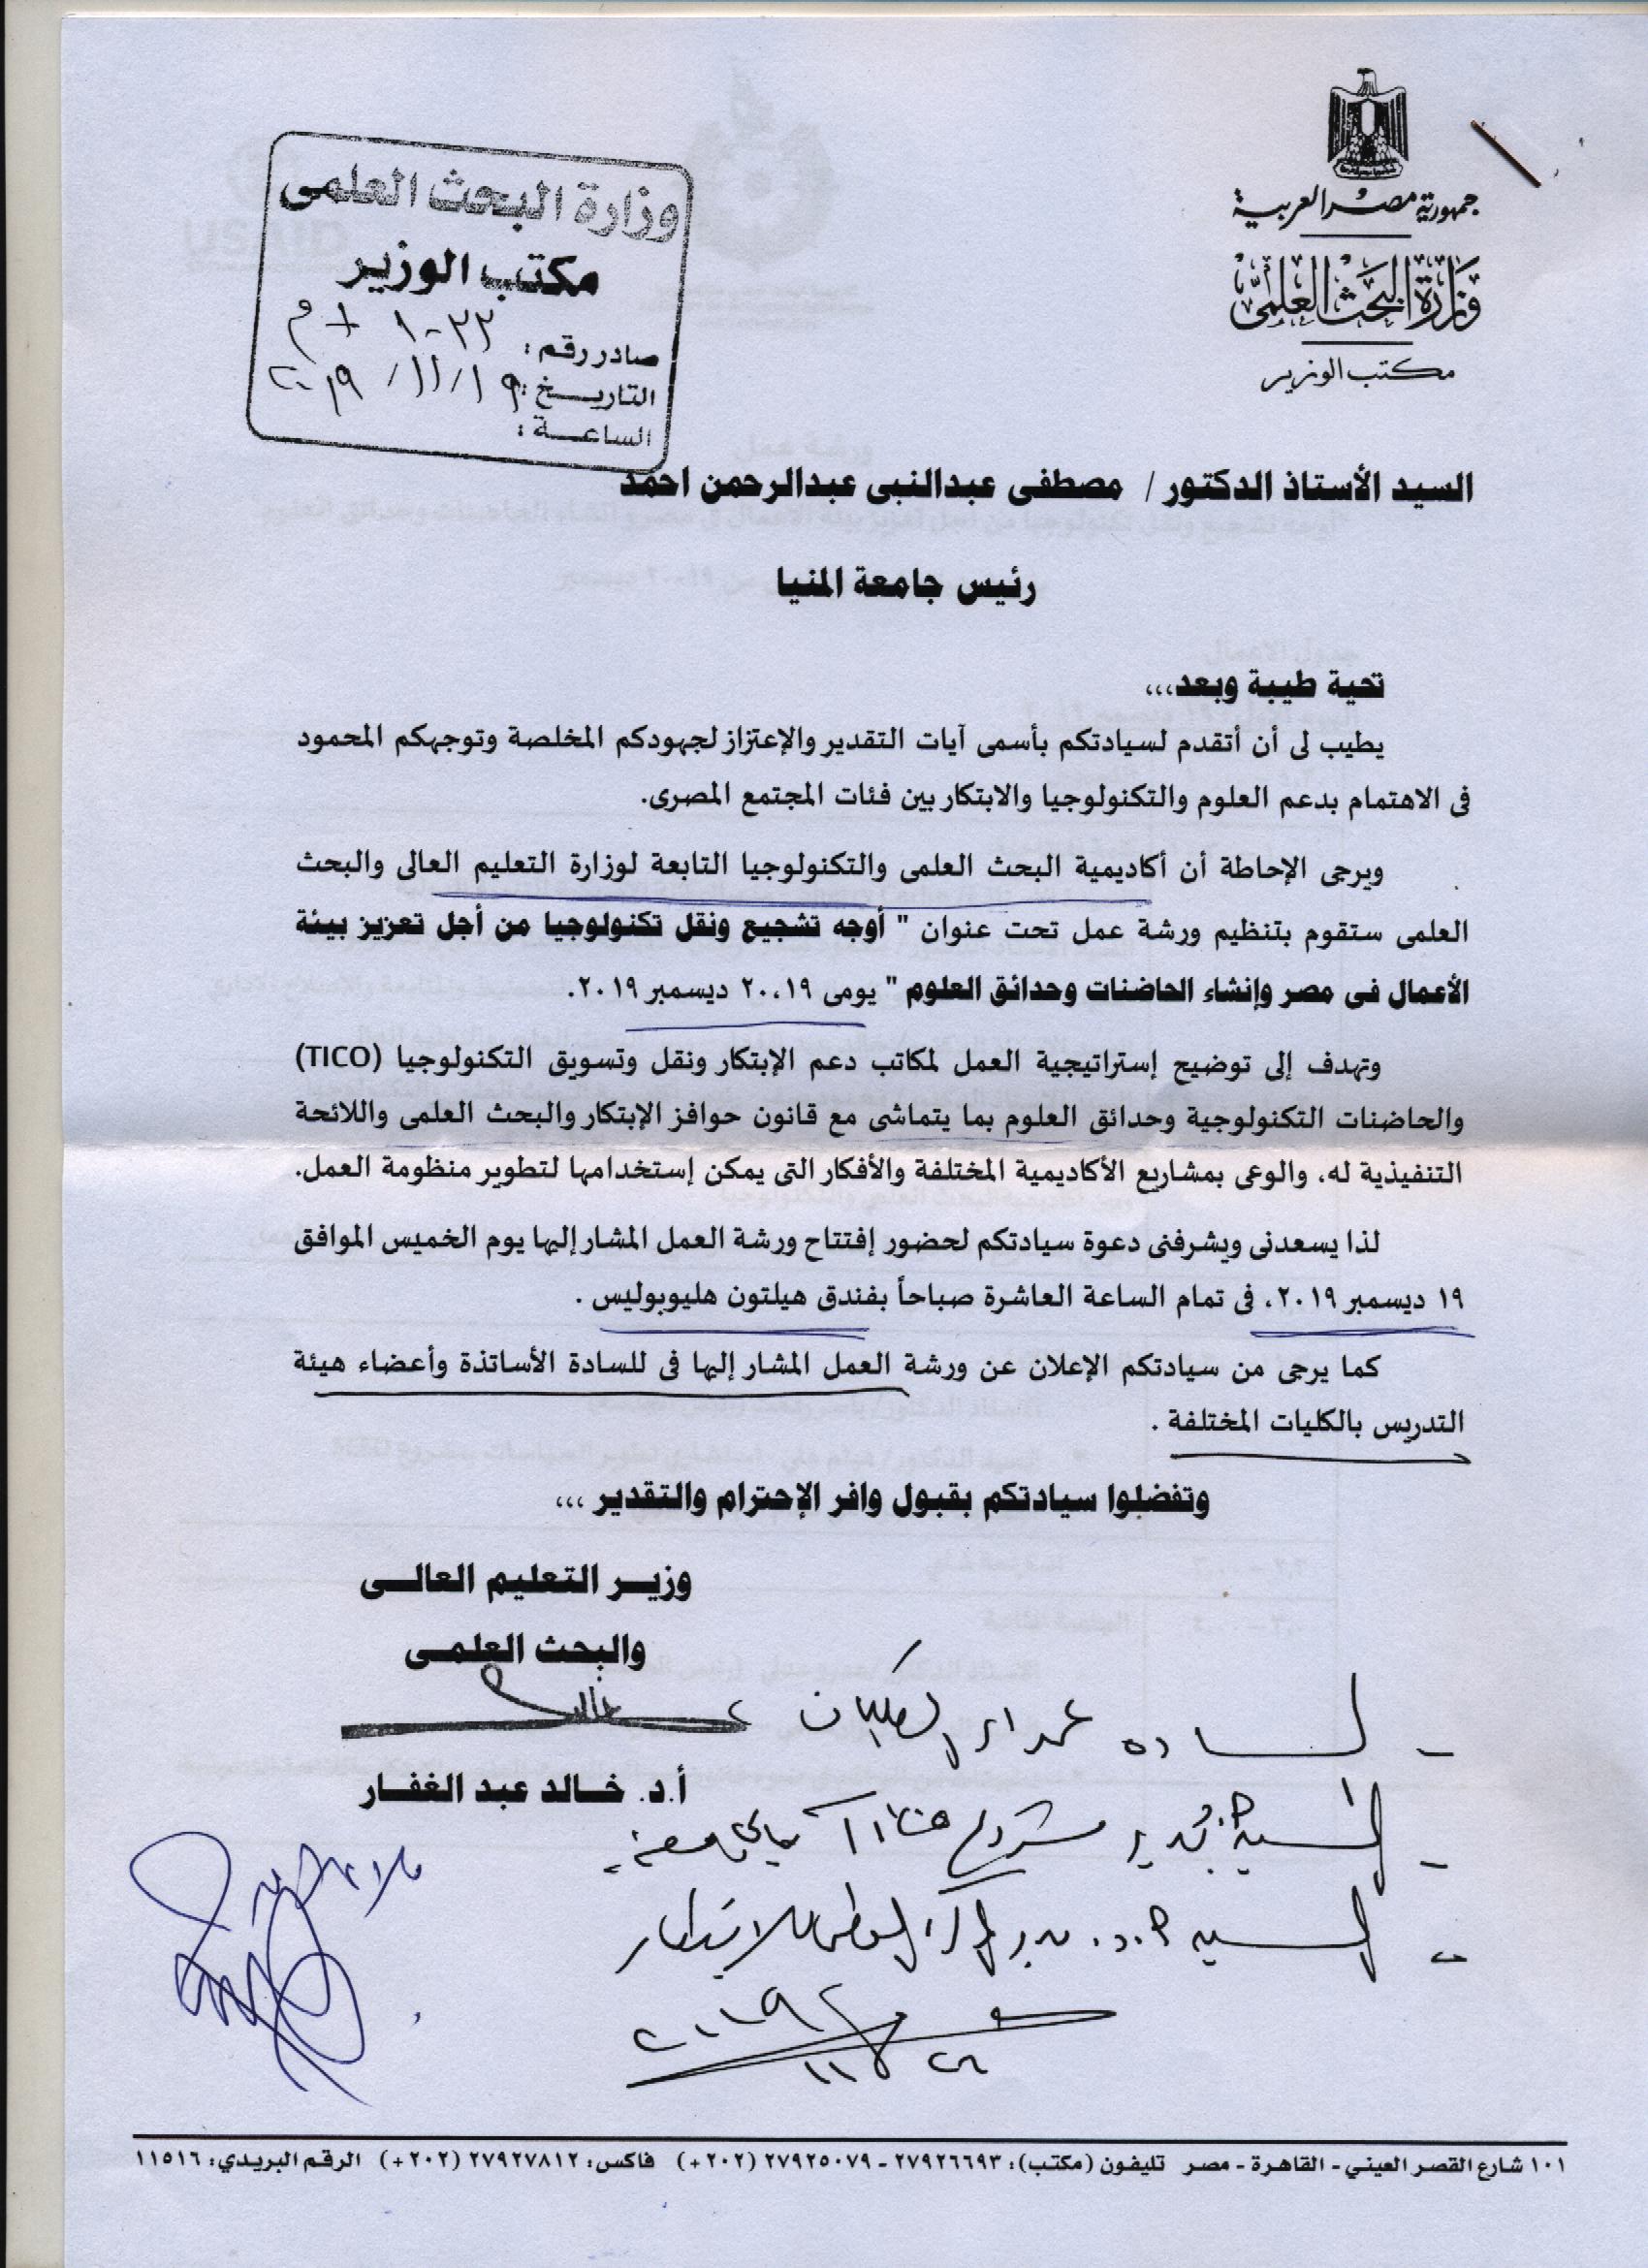 جمهورية مصر العربية
وزارة البحث العلمى
مكتب الوزير
وزارة البحث العلمى
مكتب الوزير
صادر رقم :
التاريخ : ١٩ /١١/ ٢٠١٩
الساعة :
السيد الأستاذ الدكتور / مصطفى عبدالنبى عبدالرحمن احمد
رئيس جامعة المنيا
تحية طيبة وبعد،،،
يطيب لى أن أتقدم لسيادتكم بأسمى آيات التقدير والإعتزاز لجهودكم المخلصة وتوجهكم المحمود
فى الاهتمام بدعم العلوم والتكنولوجيا والابتكار بين فئات المجتمع المصرى.
ويرجى الإحاطة أن أكاديمية البحث العلمى والتكنولوجيا التابعة لوزارة التعليم العالى والبحث
العلمى ستقوم بتنظيم ورشة عمل تحت عنوان " أوجه تشجيع ونقل تكنولوجيا من أجل تعزيز بيئة
الأعمال فى مصر وإنشاء الحاضنات وحدائق العلوم " يومى ٢٠،١٩ ديسمبر ٢٠١٩.
وتهدف إلى توضيح إستراتيجية العمل لمكاتب دعم الإبتكار ونقل وتسويق التكنولوجيا (TICO)
والحاضنات التكنولوجية وحدائق العلوم بما يتماشى مع قانون حوافز الإبتكار والبحث العلمى واللائحة
التنفيذية له، والوعى بمشاريع الأكاديمية المختلفة والأفكار التى يمكن إستخدامها لتطوير منظومة العمل.
لذا يسعدنى ويشرفنى دعوة سيادتكم لحضور إفتتاح ورشة العمل المشار إليها يوم الخميس الموافق
١٩ ديسمبر ٢٠١٩، فى تمام الساعة العاشرة صباحاً بفندق هيلتون هليوبوليس .
كما يرجى من سيادتكم الإعلان عن ورشة العمل المشار إليها فى للسادة الأساتذة وأعضاء هيئة
التدريس بالكليات المختلفة .
وتفضلوا سيادتكم بقبول وافر الإحترام والتقدير ،،،
وزيـر التعليم العالـى
والبحث العلمـى
أ.د. خـالد عبد الغفـار
- لسـاده عمداء الكليات
- السيد مدير مشروع
- السيد أ.د. مدير
٢٠١٩
١١
٢٦
١٠١ شارع القصر العيني - القاهرة - مصر تليفون (مكتب): ٢٧٩٢٦٦٩٣ - ٢٧٩٢٥٠٧٩ (٢٠٢+) فاكس: ٢٧٩٢٧٨١٢ (٢٠٢+) الرقم البريدي: ١١٥١٦